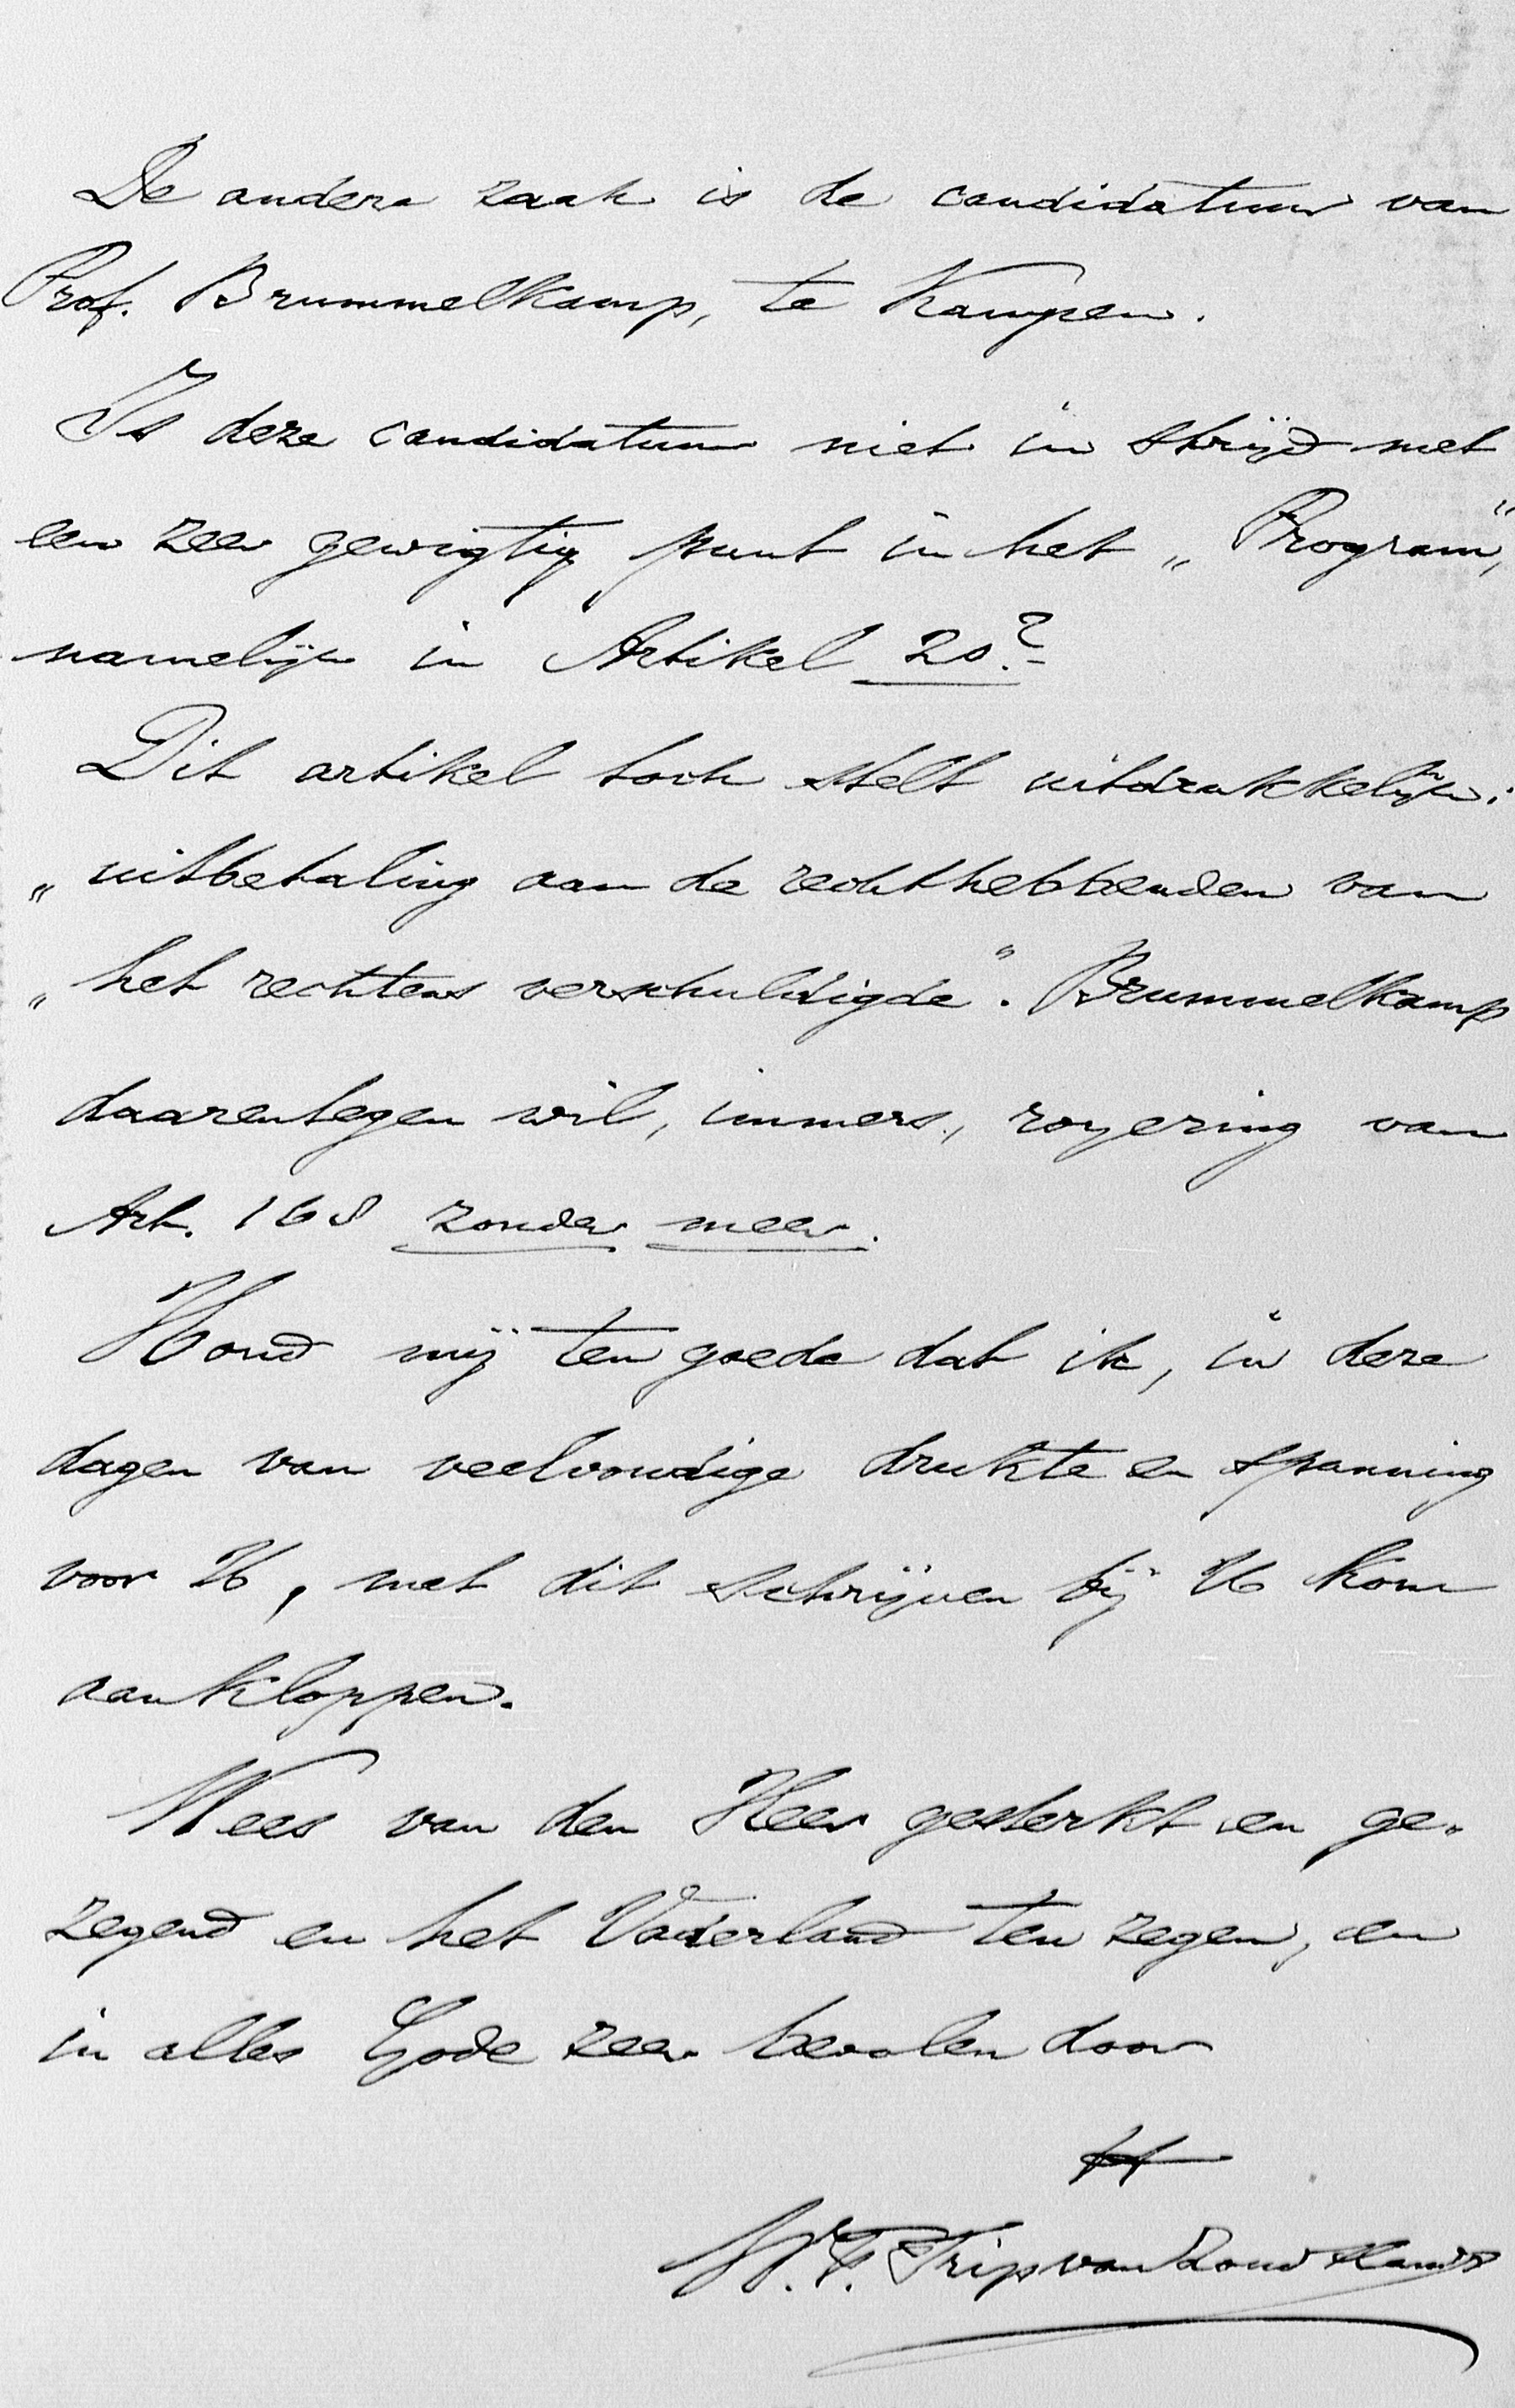 De andere zaak is de candidatuur van
Prof. Brummelkamp, te Kampen.
Is deze candidatuur niet in strijd met
een zeer gewigtig punt in het „Program",
namelijk in Artikel 20?
Dit artikel toch stelt uitdrukkelijk:
„uitbetaling aan de rechthebbenden van
„het rechtens verschuldigde". Brummelkamp
daarentegen wil, immers, royering van
Art. 168 zonder meer.
Houd mij ten goede dat ik, in deze
dagen van veelvoudige drukte en spanning
voor U, met dit schrijven bij U kom
aankloppen.
Wees van den Heer gesterkt en ge-
zegend en het Vaderland ten zegen, en
in alles Gode zeer bevolen door
W. F. Trip van Zoudtlandt